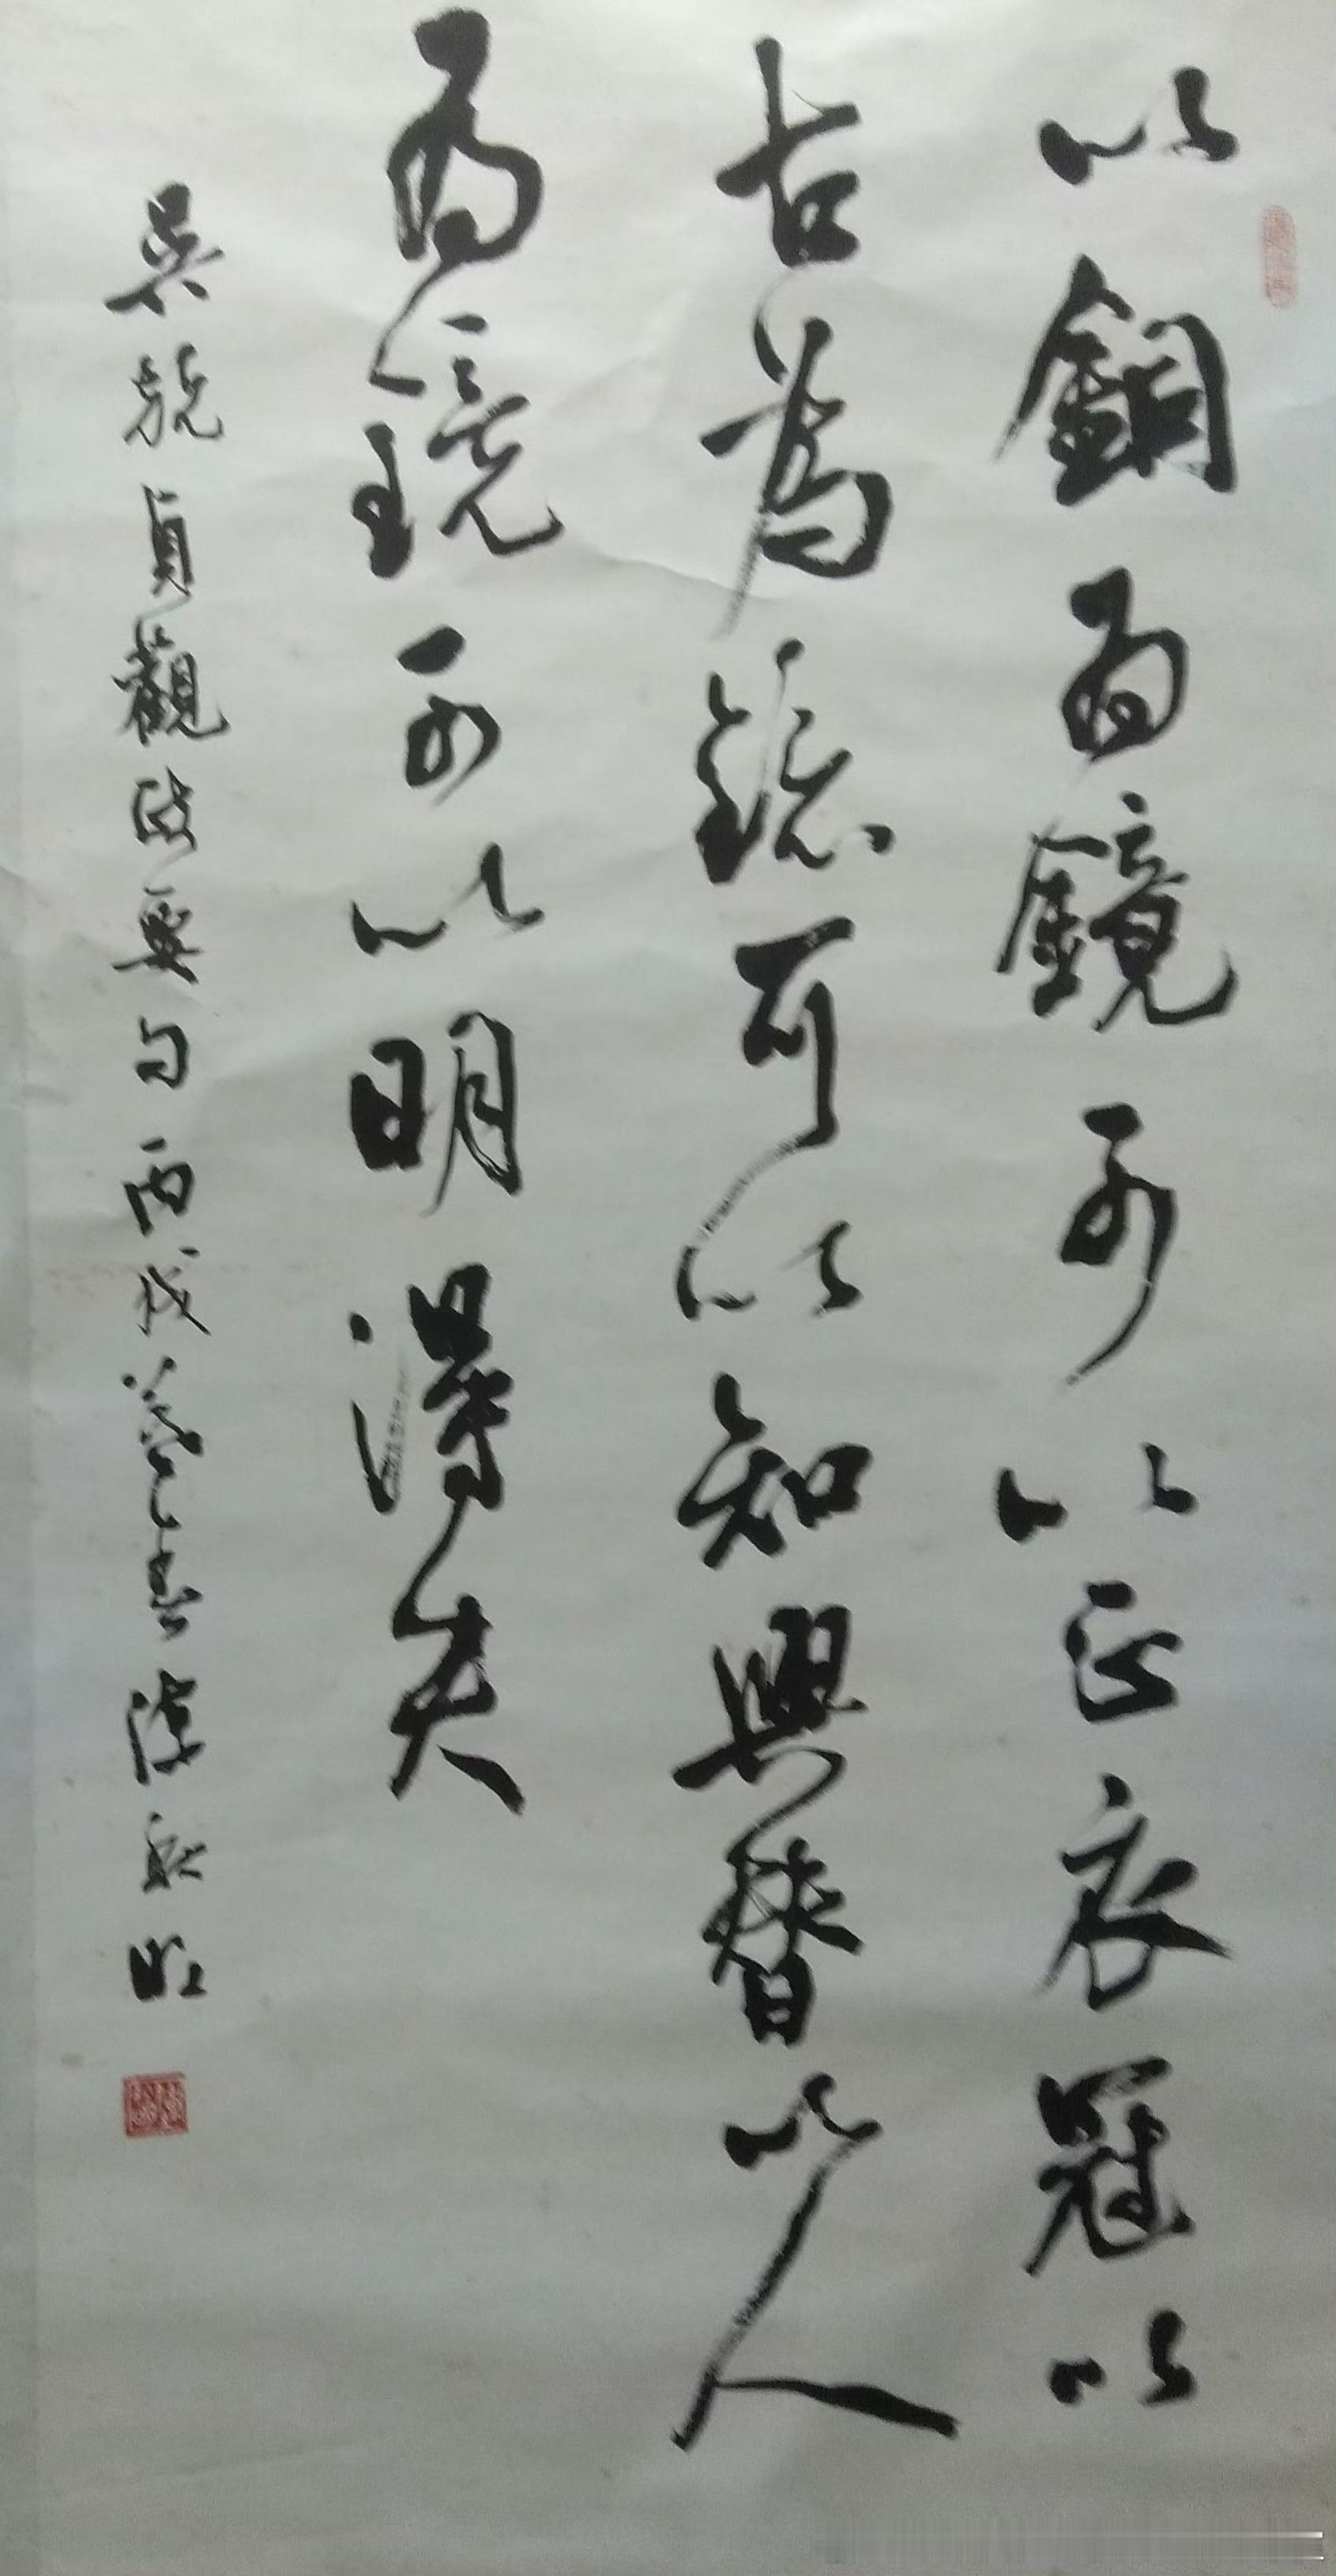 以銅為鏡可以正衣冠以
古為鏡可以知興替以人
為鏡可以明得失
吳兢貞觀政要句丙戌暮春